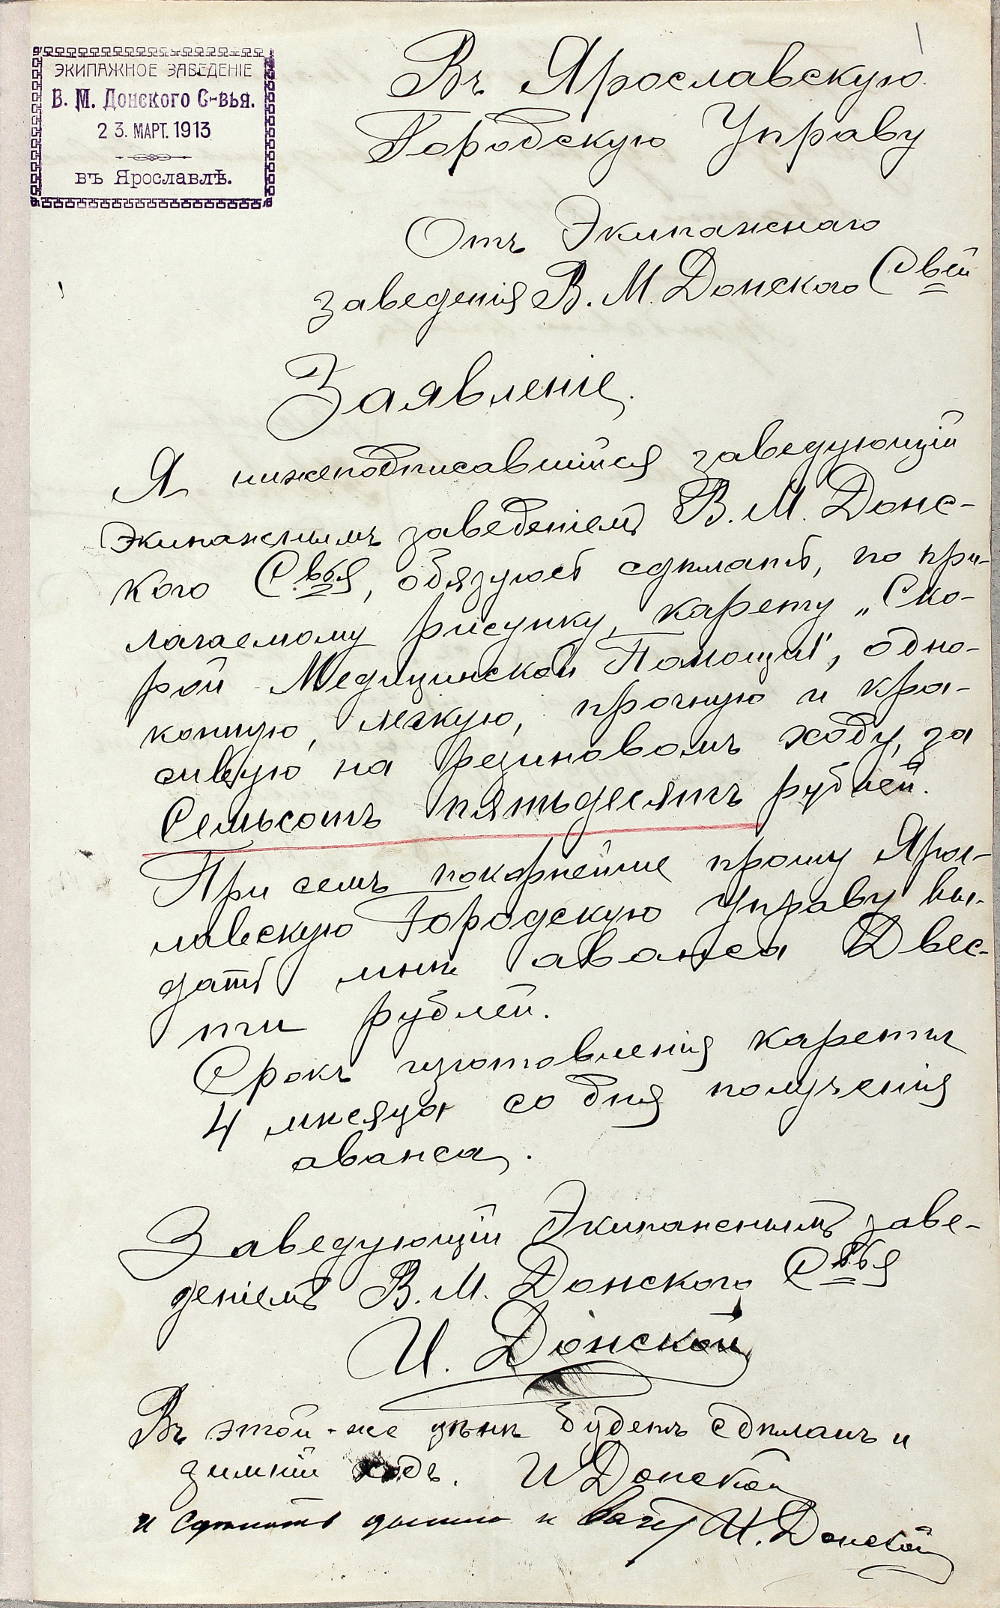 ЭКИПАЖНОЕ ЗАВЕДЕНІЕ
В. М. Донского С-вья.
23. МАРТ. 1913
въ Ярославлѣ.
Въ Ярославскую
Городскую Управу
Отъ Экипажнаго
заведенія В. М. Донского С-вей
Заявленіе.
Я нижеподписавшійся заведующій
экипажнымъ заведеніемъ В. М. Донс-
кого С-вья, обязуюсь сдѣлать, по при-
лагаемому рисунку, карету „Ско-
рой Медицинской Помощи", одно-
конную, легкую, прочную и кра-
сивую на резиновомъ ходу, за
Семьсотъ пятьдесятъ рублей.
При семъ покорнейше прошу Яро-
лавскую Городскую Управу вы-
дать мнѣ аванса Двес-
ти рублей.
Срокъ изготовленія кареты
4 мѣсяца со дня полученія
аванса.
Заведующій Экипажнымъ заве-
деніемъ В. М. Донского С-вья
И. Донской
Въ этой-же цѣнѣ будетъ сдѣланъ и
зимній ходъ. И Донской
и сдѣлать дышло и вагу И. Донской